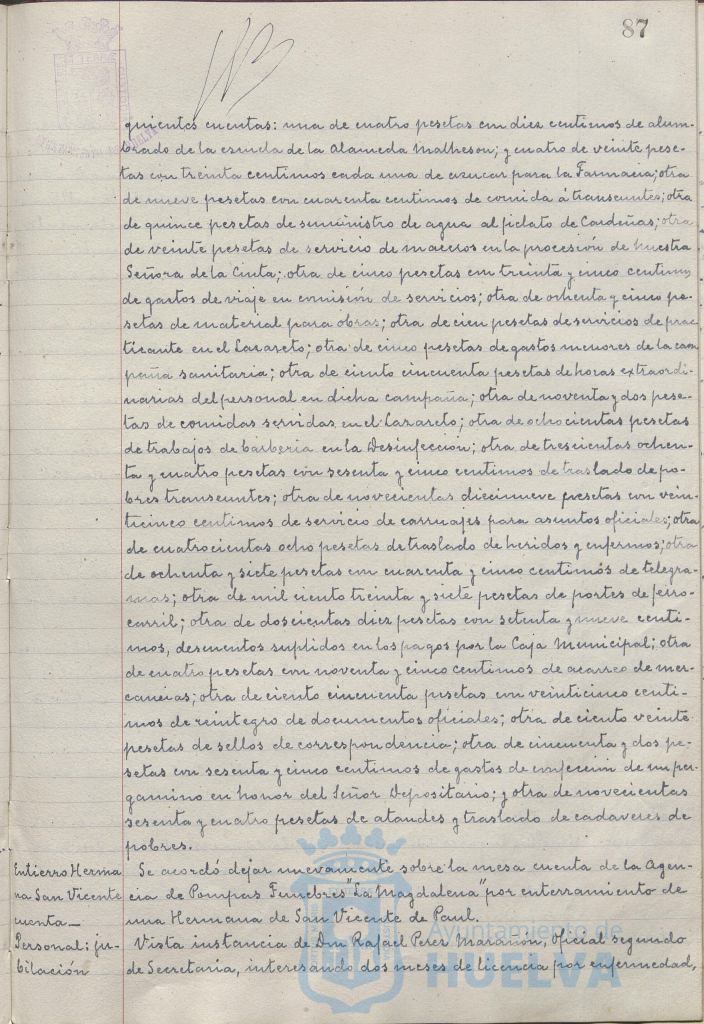 87
quientes cuentas: una de cuatro pesetas con diez centimos de alum-
brado de la escuela de la Alameda Matheson; y cuatro de veinte pese-
tas con treinta centimos cada una de azucar para la Farmacia; otra
de nueve pesetas con cuarenta centimos de comida á transeuntes; otra
de quince pesetas de suministro de agua al fielato de Cardeñas; otra
de veinte pesetas de servicio de maceros en la procesión de Nuestra
Señora de la Cinta; otra de cinco pesetas con treinta y cinco centimos
de gastos de viaje en comisión de servicios; otra de ochenta y cinco pe-
setas de material para obras; otra de cien pesetas de servicios de prac-
ticante en el Lazareto; otra de cinco pesetas de gastos menores de la cam
paña sanitaria; otra de ciento cincuenta pesetas de horas extraordi-
narias del personal en dicha campaña; otra de noventa y dos pese-
tas de comidas servidas en el Lazareto; otra de ochocientas pesetas
de trabajos de barberia en la Desinfección; otra de trescientas ochen-
ta y cuatro pesetas con sesenta y cinco centimos de traslado de po-
bres transeuntes; otra de novecientas diecinueve pesetas con vein-
ticinco centimos de servicio de carruajes para asuntos oficiales; otra
de cuatrocientas ocho pesetas de traslado de heridos y enfermos; otra
de ochenta y siete pesetas con cuarenta y cinco centimos de telegra-
mas; otra de mil ciento treinta y siete pesetas de portes de ferro-
carril; otra de doscientas diez pesetas con setenta y nueve centi-
mos, descuentos suplidos en los pagos por la Caja Municipal; otra
de cuatro pesetas con noventa y cinco centimos de acarreo de mer-
cancias; otra de ciento cincuenta pesetas con veinticinco centi-
mos de reintegro de documentos oficiales; otra de ciento veinte
pesetas de sellos de correspondencia; otra de cincuenta y dos pe-
setas con sesenta y cinco centimos de gastos de confección de un per-
gamino en honor del Señor Depositario; y otra de novecientas
sesenta y cuatro pesetas de ataudes y traslado de cadaveres de
pobres.
Entierro Herma
na San Vicente
cuenta_
Se acordó dejar nuevamente sobre la mesa cuenta de la Agen-
cia de Pompas Funebres "La Magdalena" por enterramiento de
una Hermana de San Vicente de Paul.
Personal: ju-
bilación
Vista instancia de Don Rafael Perez Marañón, Oficial segundo
de Secretaria, interesando dos meses de licencia por enfermedad,
Ayuntamiento de
HUELVA